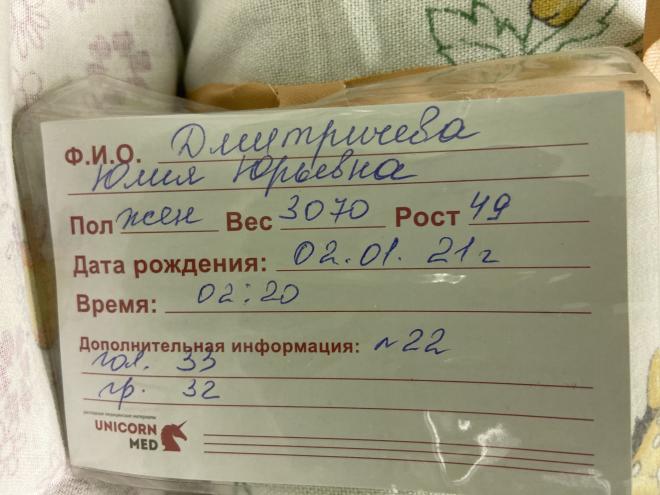 Ф.И.О. Дмитричева
Юлия Юрьевна
Пол жен Вес 3070 Рост 49
Дата рождения: 02.01.21г
Время: 02:20
Дополнительная информация: №22
гол. 33
гр. 32
UNICORN
MED